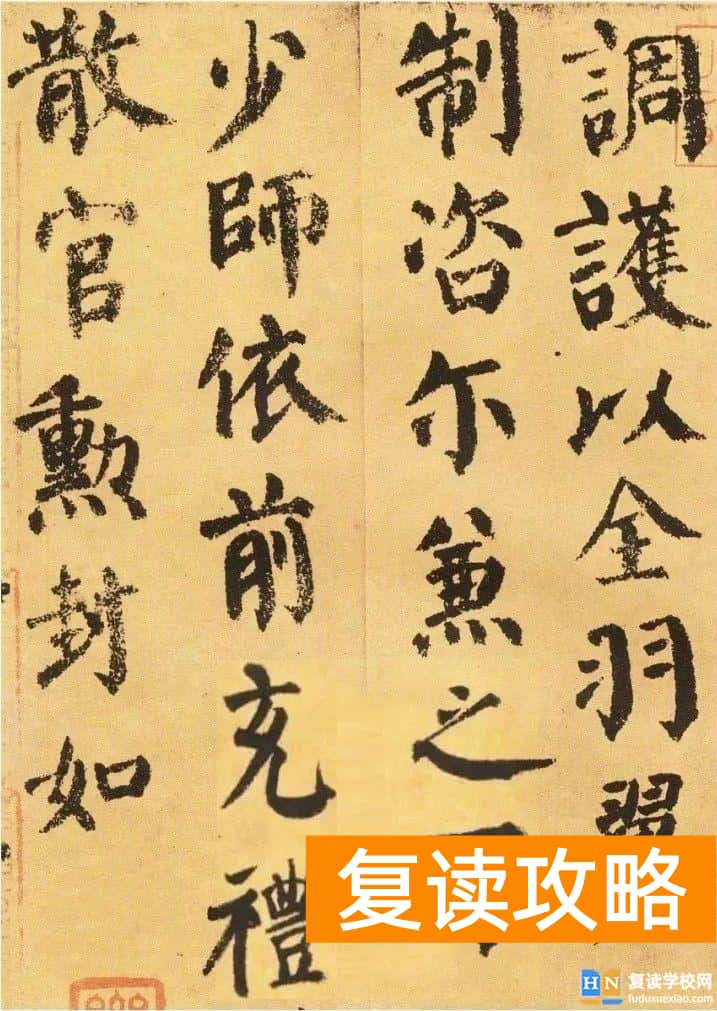 調護以全羽翼
制咨尔兼之可
少師依前充禮
散官勲封如
复读攻略
HN 复读学校网
fuduxuexiao.com